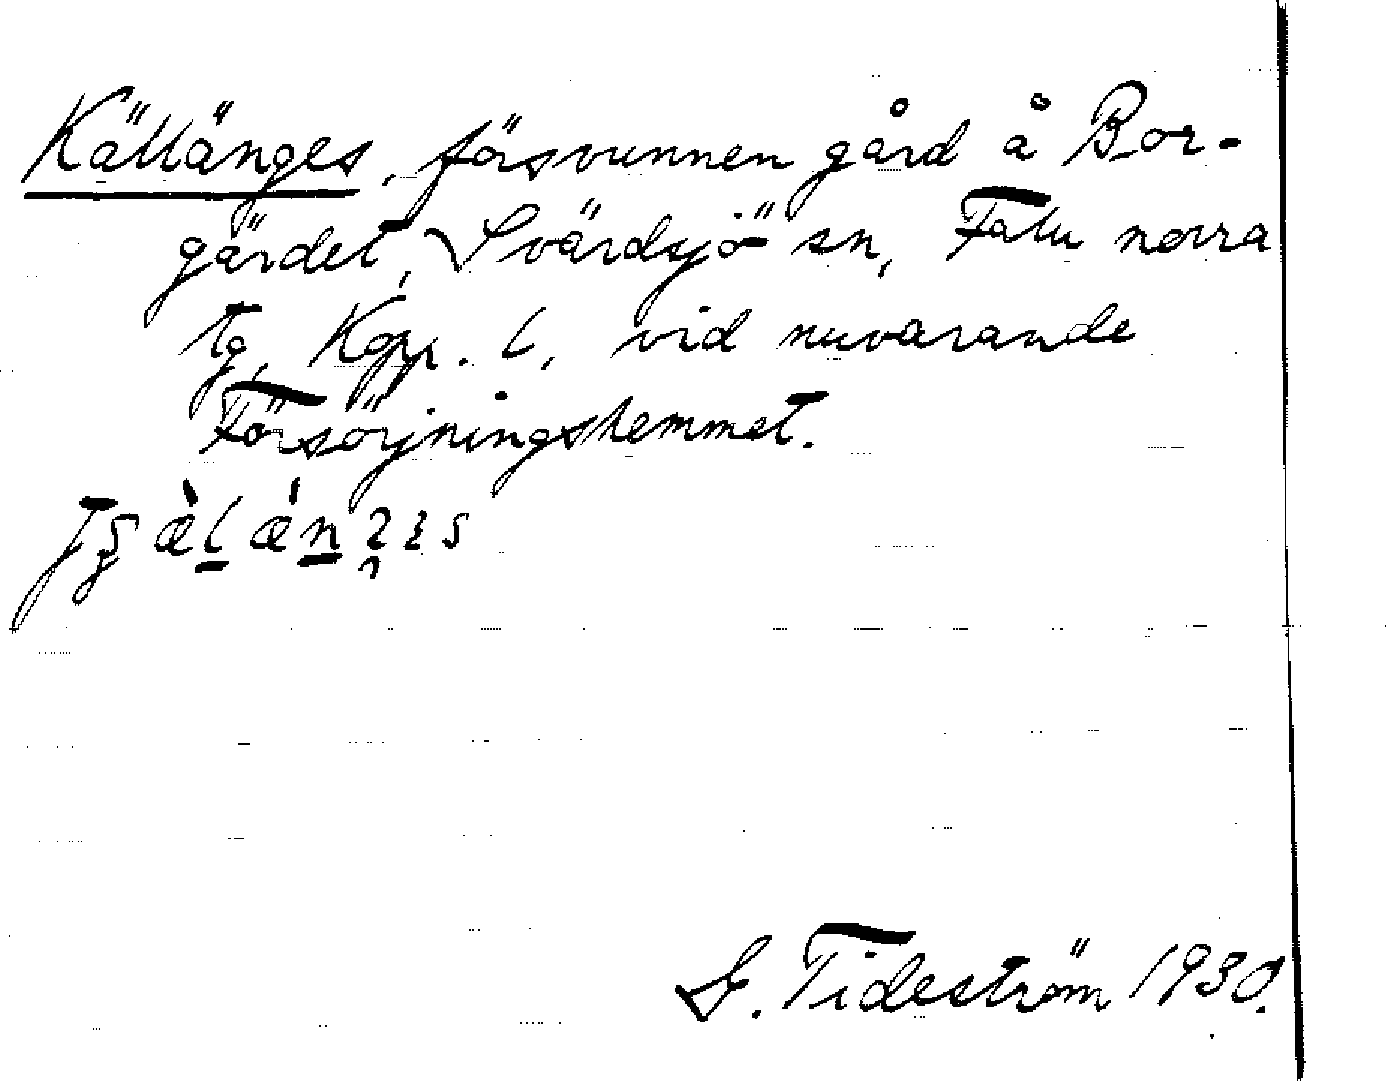 Källänges, försvunnen gård å Bor-
gärdet, Svärdsjö sn, Falu norra
tg, Kopp. l, vid nuvarande
Försörjningshemmet.
S. Tideström 1930.